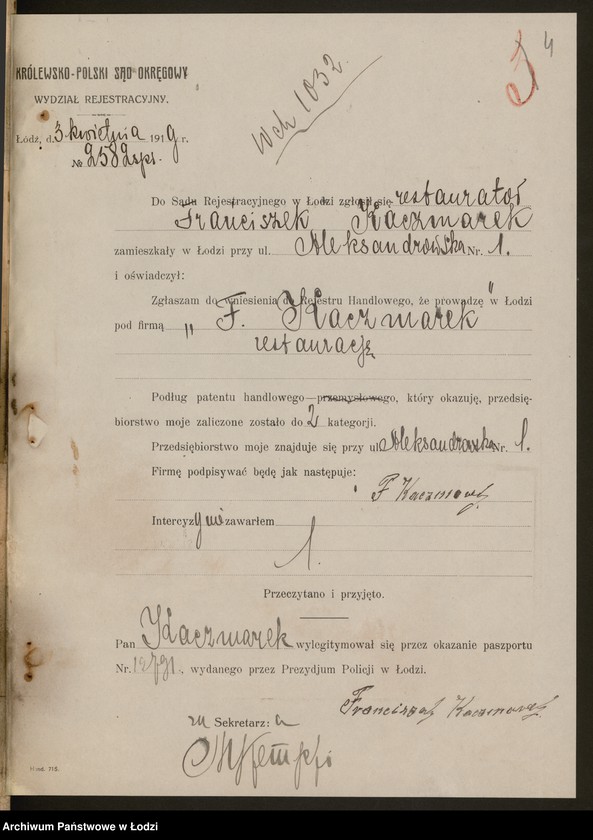 4
KRÓLEWSKO-POLSKI SĄD OKRĘGOWY
WYDZIAŁ REJESTRACYJNY.
Łódź, d. 3 kwietnia 1919 r.
№ 2582 sps.
Wch 1032.
Do Sądu Rejestracyjnego w Łodzi zgłosił się restaurator
Franciszek Kaczmarek
zamieszkały w Łodzi przy ul. Aleksandrowska Nr. 1.
i oświadczył:
Zgłaszam do wniesienia do Rejestru Handlowego, że prowadzę w Łodzi
pod firmą „F. Kaczmarek"
restaurację
Podług patentu handlowego—przemysłowego, który okazuję, przedsię-
biorstwo moje zaliczone zostało do 2 kategorji.
Przedsiębiorstwo moje znajduje się przy ul. Aleksandrowska Nr. 1.
Firmę podpisywać będę jak następuje:
F Kaczmarek
Intercyzy nie zawarłem
Przeczytano i przyjęto.
Pan Kaczmarek wylegitymował się przez okazanie paszportu
Nr. , wydanego przez Prezydjum Policji w Łodzi.
Franciszek Kaczmarek
Sekretarz:
Archiwum Państwowe w Łodzi